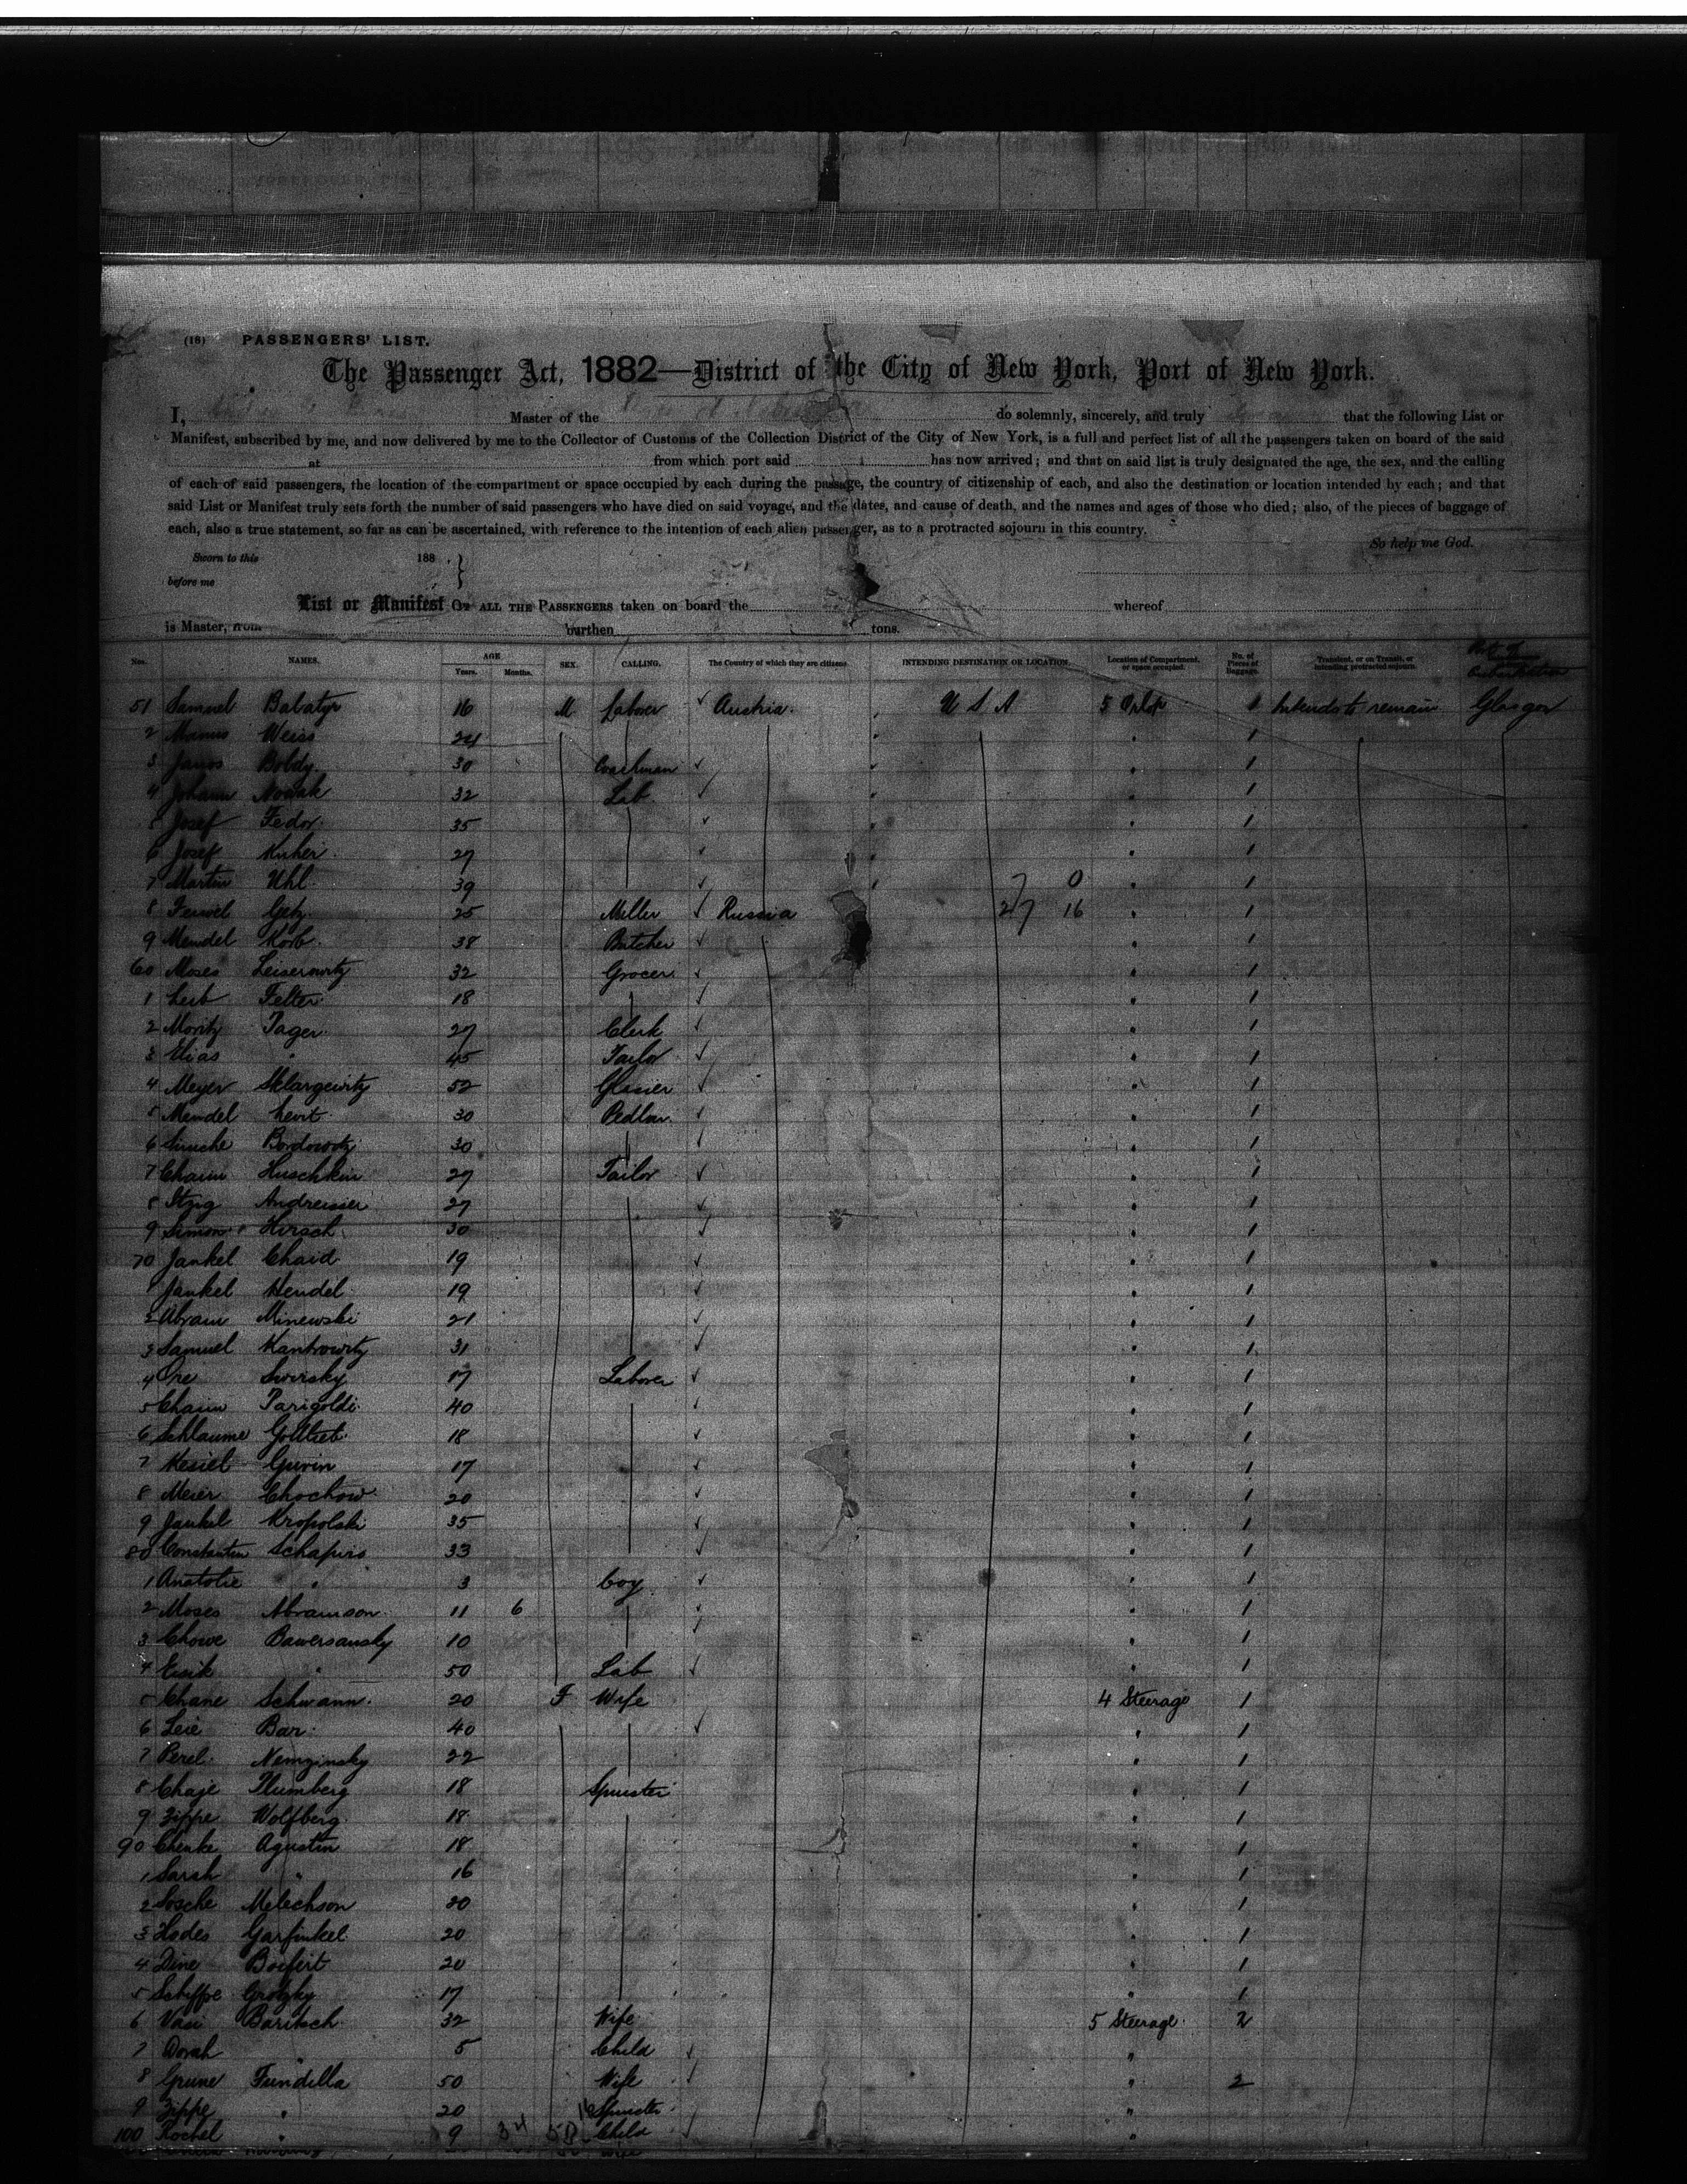 (18) PASSENGERS' LIST.
The Passenger Act, 1882—District of the City of New York, Port of New York.
I, Master of the do solemnly, sincerely, and truly that the following List or
Manifest, subscribed by me, and now delivered by me to the Collector of Customs of the Collection District of the City of New York, is a full and perfect list of all the passengers taken on board of the said
at from which port said has now arrived; and that on said list is truly designated the age, the sex, and the calling
of each of said passengers, the location of the compartment or space occupied by each during the passage, the country of citizenship of each, and also the destination or location intended by each; and that
said List or Manifest truly sets forth the number of said passengers who have died on said voyage, and the dates, and cause of death, and the names and ages of those who died; also, of the pieces of baggage of
each, also a true statement, so far as can be ascertained, with reference to the intention of each alien passenger, as to a protracted sojourn in this country.
So help me God.
Sworn to this 188 .
before me
List or Manifest OF ALL THE PASSENGERS taken on board the whereof
is Master, from burthen tons.
Nos. NAMES. AGE Years. Months. SEX. CALLING. The Country of which they are citizens. INTENDING DESTINATION OR LOCATION. Location of Compartment, or space occupied. No. of Pieces of Baggage. Transient, or on Transit, or intending protracted sojourn. Port of Embarkation
51 Samuel Babatyr 16 M Laborer Austria. U S A 5 Orlop 1 Intends to remain Glasgow
2 Manus Weiss 24 1
3 Janos Boldy 30 Coachman 1
4 Johann Nowak 32 Lab 1
5 Josef Fedor 35 1
6 Josef Kuher 27 1
7 Martin Uhl 39 0 1
8 Feiwel Getz 25 Miller Russia 27 16 1
9 Mendel Korb 38 Butcher 1
60 Moses Leiserowitz 32 Grocer 1
1 Leib Felter 18 1
2 Moritz Jager 27 Clerk 1
3 Elias " 45 Tailor 1
4 Meyer Sklargewitz 52 Glasier 1
5 Mendel Levit 30 Pedlar 1
6 Simche 30 1
7 Chaim Huschkin 27 Tailor 1
8 Itzig Andreisier 27 1
9 Simon Hirsch 30 1
70 Jankel Chaid 19 1
1 Jankel Hendel 19 1
2 Abram Minewski 21 1
3 Samuel Kantrowitz 31 1
4 Ore Swirsky 17 Laborer 1
5 Chaim Parigoldi 40 1
6 Schlaume Gottlieb 18 1
7 Kesiel Gurvin 17 1
8 Meier Chochow 20 1
9 Jankel Kropolski 35 1
80 Constantin Schapiro 33 1
1 Anatolie " 3 boy 1
2 Moses Abramson 11 6 1
3 Chowe Bawersansky 10 1
4 Eisik " 50 Lab 1
5 Chane Schwann 20 F Wife 4 Steerage 1
6 Leie Bar 40 1
7 Perel Nemzinsky 22 1
8 Chaje Plumberg 18 Spinster 1
9 Zippe Wolfberg 18 1
90 Chenke Agustin 18 1
1 Sarah " 16 1
2 Sosche Melechson 20 1
3 Hodes Garfinkel 20 1
4 Dine Boifert 20 1
5 Schiffre Grotzky 17 1
6 Vasi Baritsch 32 Wife 5 Steerage 2
7 Dorah " 5 Child "
8 Grune Fundilla 50 Wife " 2
9 Zippe " 20 Spinster "
100 Rochel " 9 34 58 Child "